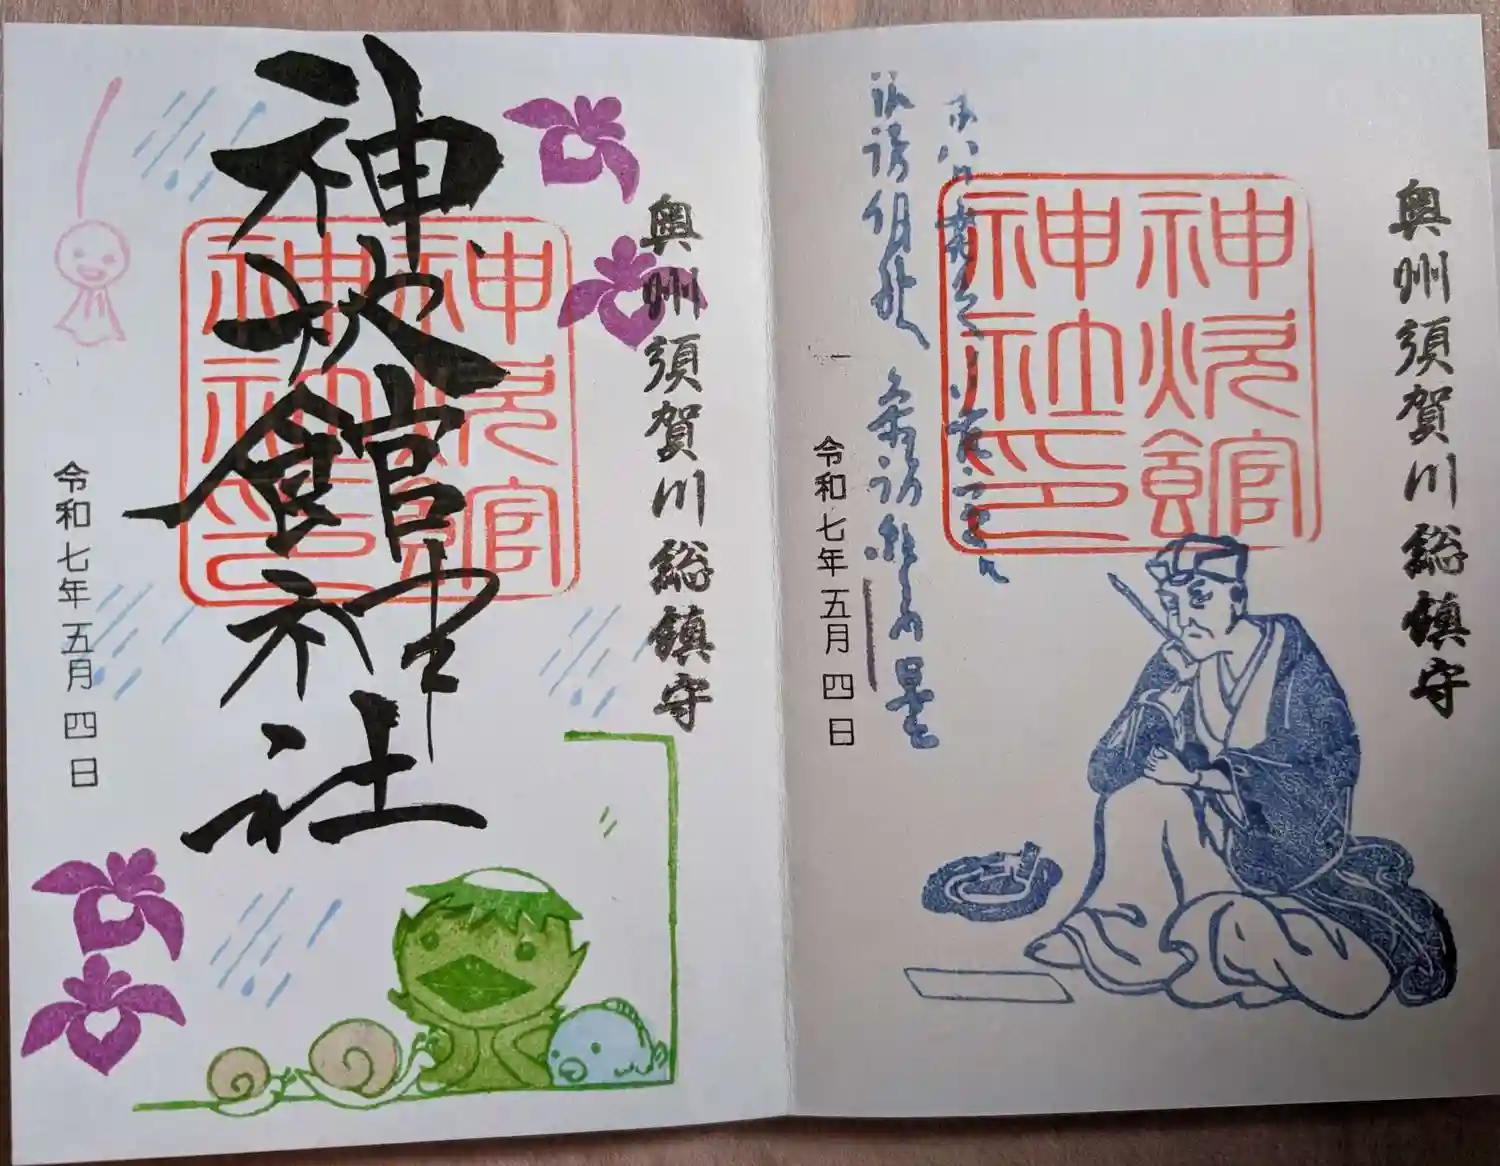 奥州須賀川総鎮守
神炊館
神社印
令和七年五月四日
奥州須賀川総鎮守
神炊館神社
神炊館
神社印
令和七年五月四日